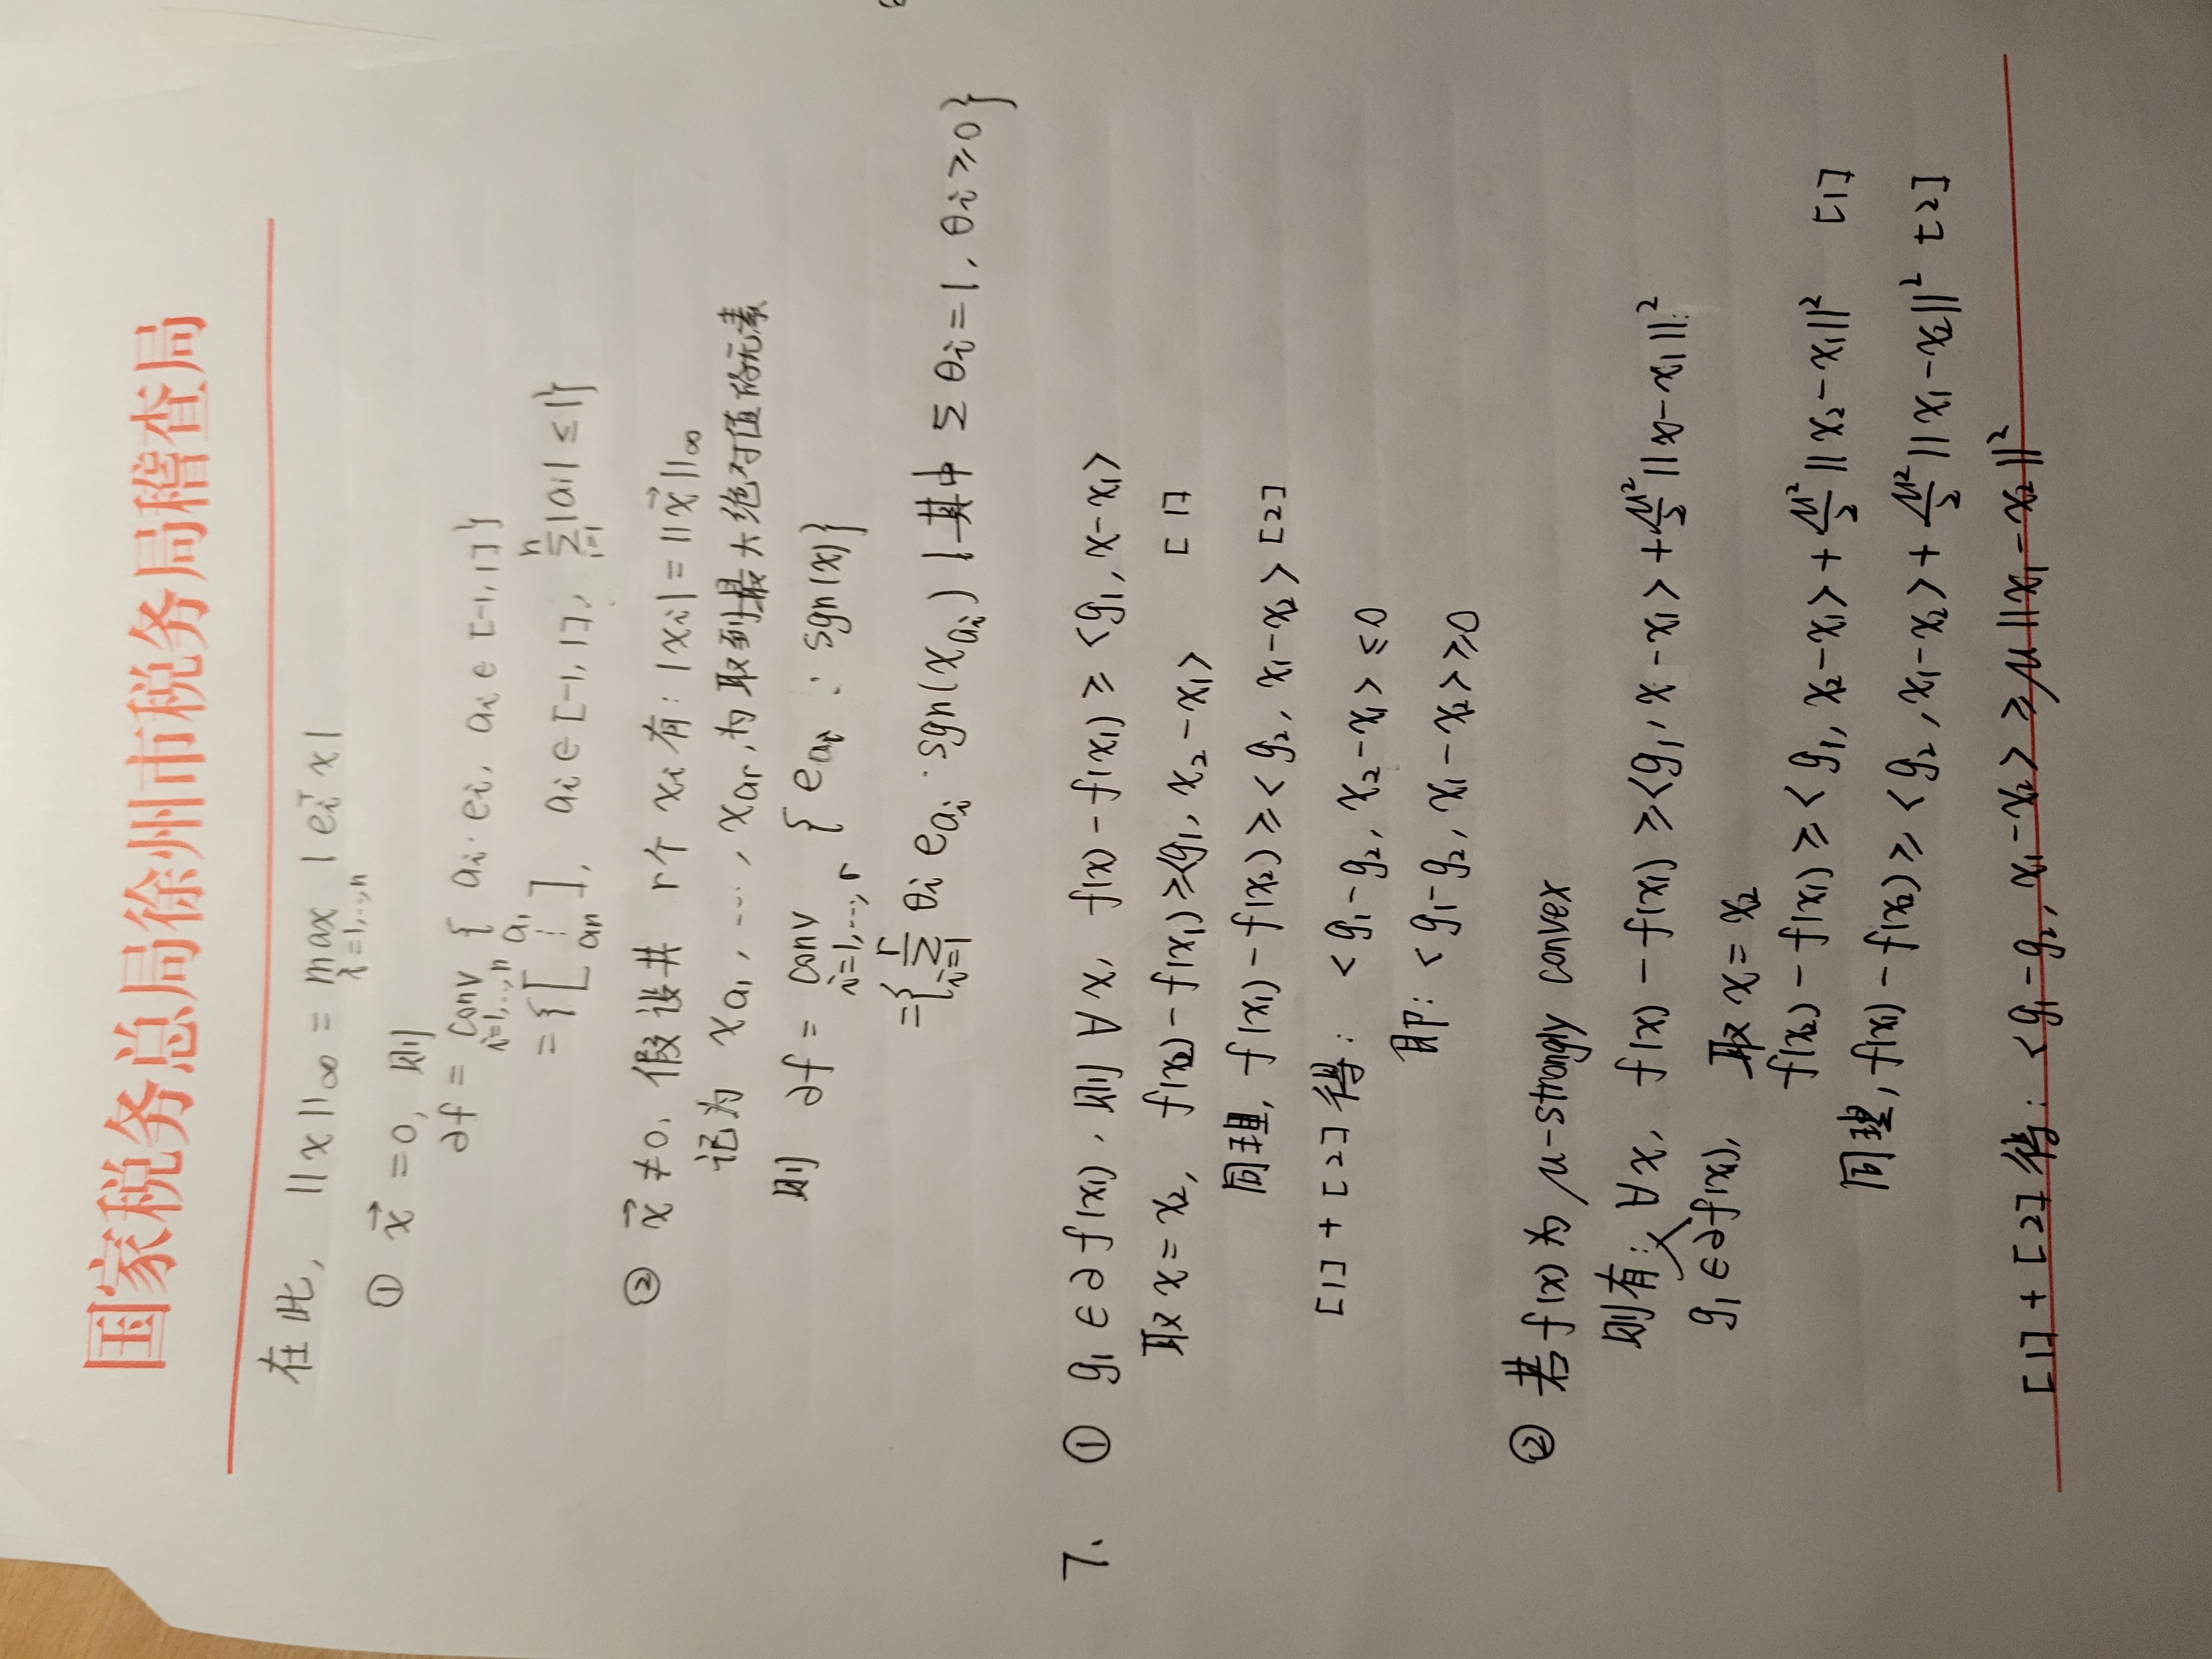 国家税务总局徐州市税务局稽查局
在此, ||x||∞ = max |eᵢᵀx|
i=1,...,n
① x⃗ =0, 则
∂f = conv { aᵢ·eᵢ, aᵢ∈[-1,1]}
i=1,...,n
={[a₁ ⋮ aₙ], aᵢ∈[-1,1], Σⁿᵢ₌₁|aᵢ| ≤1}
② x⃗ ≠0, 假设共 r个 xᵢ 有: |xᵢ|=||x⃗||∞
记为 x_{a₁}, ⋯, x_{aᵣ},为取到最大绝对值的元素
则 ∂f = conv { e_{aᵢ} · sgn(x)}
i=1,⋯,r
={Σʳᵢ₌₁ θᵢ e_{aᵢ}·sgn(x_{aᵢ}) | 其中 Σθᵢ=1, θᵢ≥0}
7. ① g₁∈∂f(x₁), 则 ∀x, f(x)-f(x₁) ≥ <g₁, x-x₁>
取 x=x₂, f(x₂)-f(x₁)≥<g₁, x₂-x₁> [1]
同理, f(x₁)-f(x₂)≥<g₂, x₁-x₂> [2]
[1]+[2]得: <g₁-g₂, x₂-x₁>≤0
即: <g₁-g₂, x₁-x₂>≥0
② 若f(x)为 μ-strongly convex
则有: ∀x, f(x)-f(x₁)≥<g₁, x-x₁>+μ²/2||x-x₁||²
g₁∈∂f(x₁), 取 x=x₂
f(x₂)-f(x₁)≥<g₁, x₂-x₁>+μ²/2||x₂-x₁||² [1]
同理, f(x₁)-f(x₂)≥<g₂, x₁-x₂>+μ²/2||x₁-x₂||² [2]
[1]+[2]得: <g₁-g₂, x₁-x₂>≥μ||x₁-x₂||²